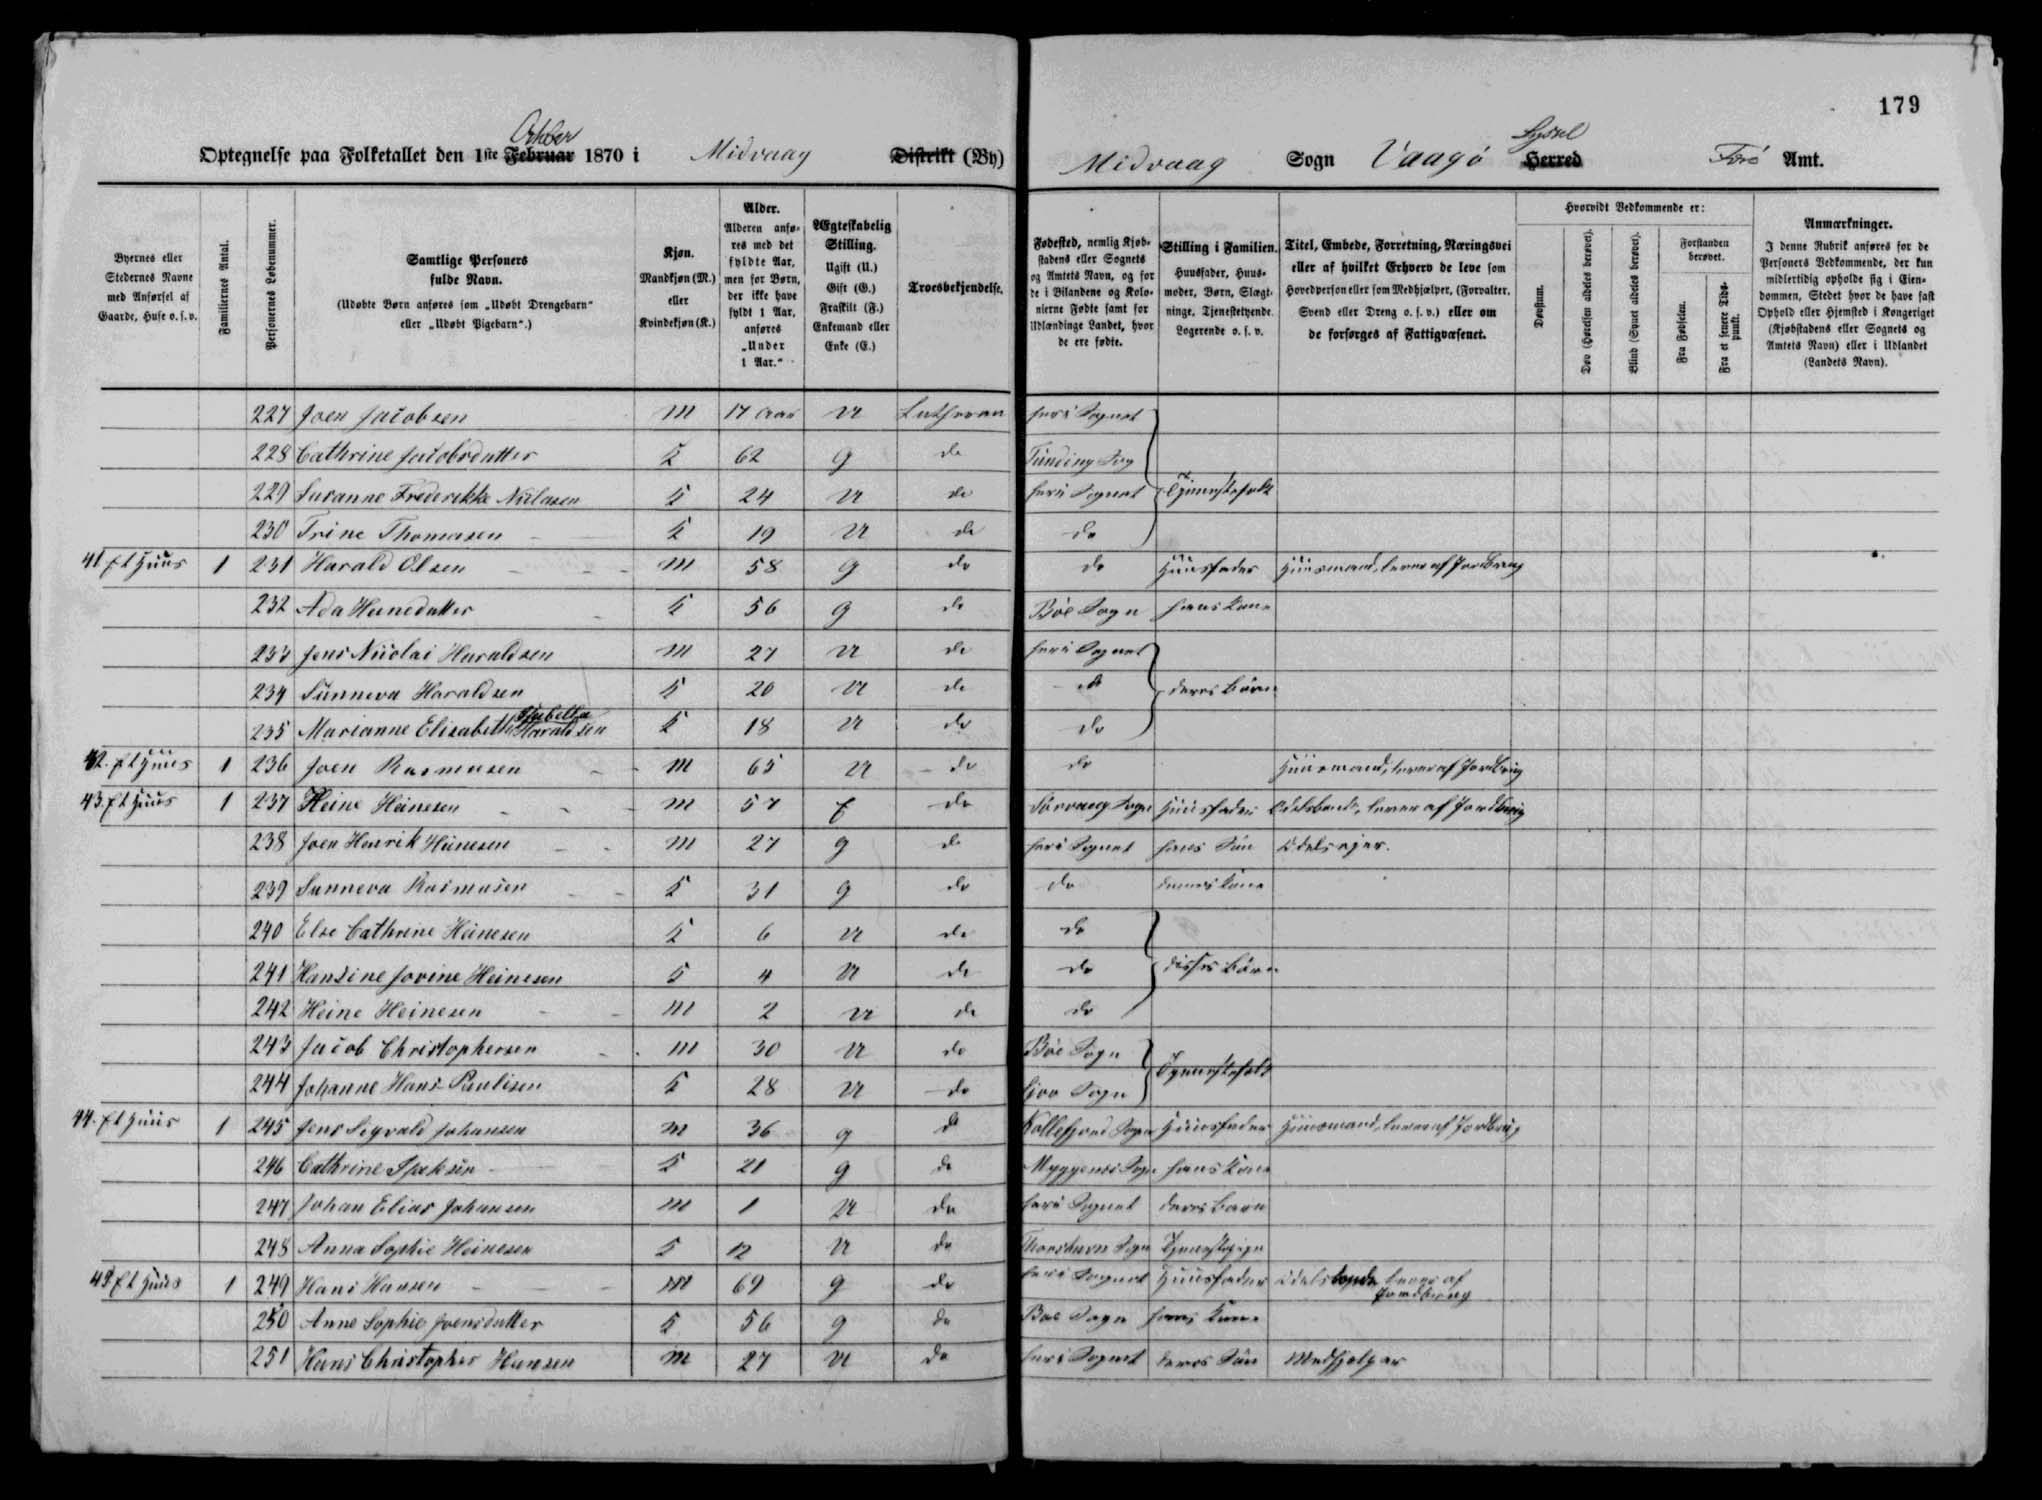 179
Optegnelse paa Folketallet den 1ste Februar October 1870 i Midvaag Distrikt (By)
Midvaag Sogn Vaagø Herred Syssel Færø Amt.
Byernes eller Stedernes Navne med Anførsel af Gaarde, Huse o. s. v.
Familiernes Antal.
Personernes Løbenummer.
Samtlige Personers fulde Navn.
(Udøbte Børn anføres som „Udøbt Drengebarn“ eller „Udøbt Pigebarn“.)
Kjøn.
Mandkjøn (M.) eller Kvindekjøn (K.)
Alder.
Alderen anføres med det fyldte Aar, men for Børn, der ikke have fyldt 1 Aar, anføres „Under 1 Aar.“
Ægteskabelig Stilling.
Ugift (U.) Gift (G.) Fraskilt (F.) Enkemand eller Enke (E.)
Troesbekjendelse.
Fødested, nemlig Kjøbstadens eller Sognets og Amtets Navn, og for de i Bilandene og Kolonierne Fødte samt for Udlændinge Landet, hvor de ere fødte.
Stilling i Familien.
Huusfader, Huusmoder, Børn, Slægtninge, Tjenestetyende, Logerende o. s. v.
Titel, Embede, Forretning, Næringsvei eller af hvilket Erhverv de leve som Hovedperson eller som Medhjælper, (Forvalter, Svend eller Dreng o. s. v.) eller om de forsørges af Fattigvæsenet.
Hvorvidt Vedkommende er:
Døvstum.
Døv (Hørelsen aldeles berøvet).
Blind (Synet aldeles berøvet).
Forstanden berøvet.
Fra Fødselen.
Fra et senere Tidspunkt.
Anmærkninger.
I denne Rubrik anføres for de Personers Vedkommende, der kun midlertidig opholde sig i Eiendommen, Stedet hvor de have fast Ophold eller Hjemsted i Kongeriget (Kjøbstadens eller Sognets og Amtets Navn) eller i Udlandet (Landets Navn).
227 Joen Jacobsen M 17 Aar U Lutheran her i Sognet
228 Cathrine Jacobsdatter K 62 G do Sog
229 Susanne Frederikke Nielasen K 24 U do her i Sognet Tjenestefolk
230 Trine Thomasen K 19 U do do
41. Et Huus 1 231 Harald Olsen M 58 G do do Huusfader Huusmand, lever af Jordbrug
232 Ada Hansdatter K 56 G do Bøe Sogn hans Kone
233 Jens Nicolai Haraldsen M 27 U do her i Sognet
234 Sunneva Haraldsen K 20 U do do deres Børn
235 Marianne Elisabeth Isabella Haraldsen K 18 U do do
42. Et Huus 1 236 Joen Rasmusen M 65 U do do Huusmand, lever af Jordbrug
43. Et Huus 1 237 Heine Heinesen M 57 E do Sørvaag Sogn Huusfader Odelsbonde, lever af Jordbrug
238 Joen Henrik Heinesen M 27 G do her i Sognet hans Søn Odelsejer.
239 Sunneva Rasmusen K 31 G do do dennes Kone
240 Else Cathrine Heinesen K 6 U do do
241 Hansine Jovine Heinesen K 4 U do do disses Børn
242 Heine Heinesen M 2 U do do
243 Jacob Christophersen M 30 U do Bøe Sogn
244 Johanne Hans Paulisen K 28 U do Sogn Tjenestefolk
44. Et Huus 1 245 Jens Sigvald Johansen M 36 G do Kollefjord Sogn Huusfader Huusmand, lever af Jordbrug
246 Cathrine K 21 G do Myggenes Sogn hans Kone
247 Johan Elias Johansen M 1 U do her i Sognet deres Barn
248 Anna Sophie Heinesen K 12 U do Thorshavn Sogn Tjenestepige
45. Et Huus 1 249 Hans Hansen M 69 G do her i Sognet Huusfader Odelsbonde lever af Jordbrug
250 Anne Sophie Joensdatter K 56 G do Bøe Sogn hans Kone
251 Hans Christopher Hansen M 27 U do her i Sognet deres Søn Medhjelper